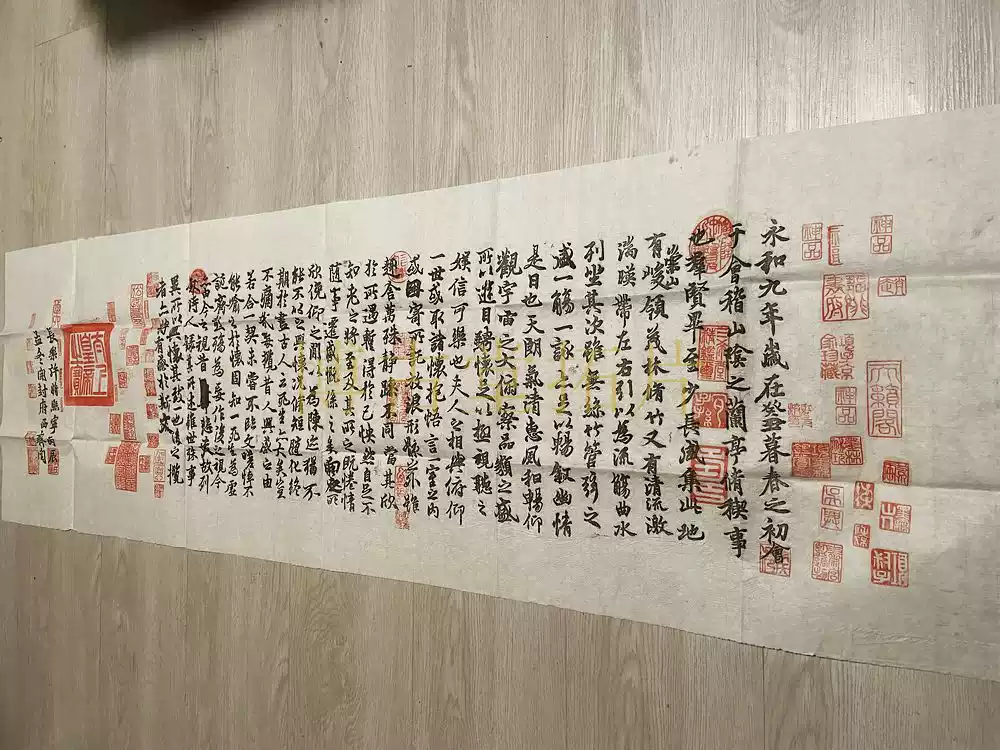 永和九年歲在癸丑暮春之初會
于會稽山陰之蘭亭脩稧事
也羣賢畢至少長咸集此地
有崇山峻領茂林脩竹又有清流激
湍暎帶左右引以為流觴曲水
列坐其次雖無絲竹管弦之
盛一觴一詠亦足以暢敘幽情
是日也天朗氣清惠風和暢仰
觀宇宙之大俯察品類之盛
所以遊目騁懷足以極視聽之
娛信可樂也夫人之相與俯仰
一世或取諸懷抱悟言一室之內
或因寄所託放浪形骸之外雖
趣舍萬殊靜躁不同當其欣
於所遇暫得於己怏然自足不
知老之將至及其所之既惓情
隨事遷感慨係之矣向之所
欣俛仰之閒以為陳迹猶不
能不以之興懷況脩短隨化終
期於盡古人云死生亦大矣豈
不痛哉每攬昔人興感之由
若合一契未嘗不臨文嗟悼不
能喻之於懷固知一死生為虛
誕齊彭殤為妄作後之視今
亦由今之視昔悲夫故列
敘時人錄其所述雖世殊事
異所以興懷其致一也後之攬
者亦將有感於斯文
長樂許將熙寧丙辰
孟冬開封府西齋閱
神品
神品